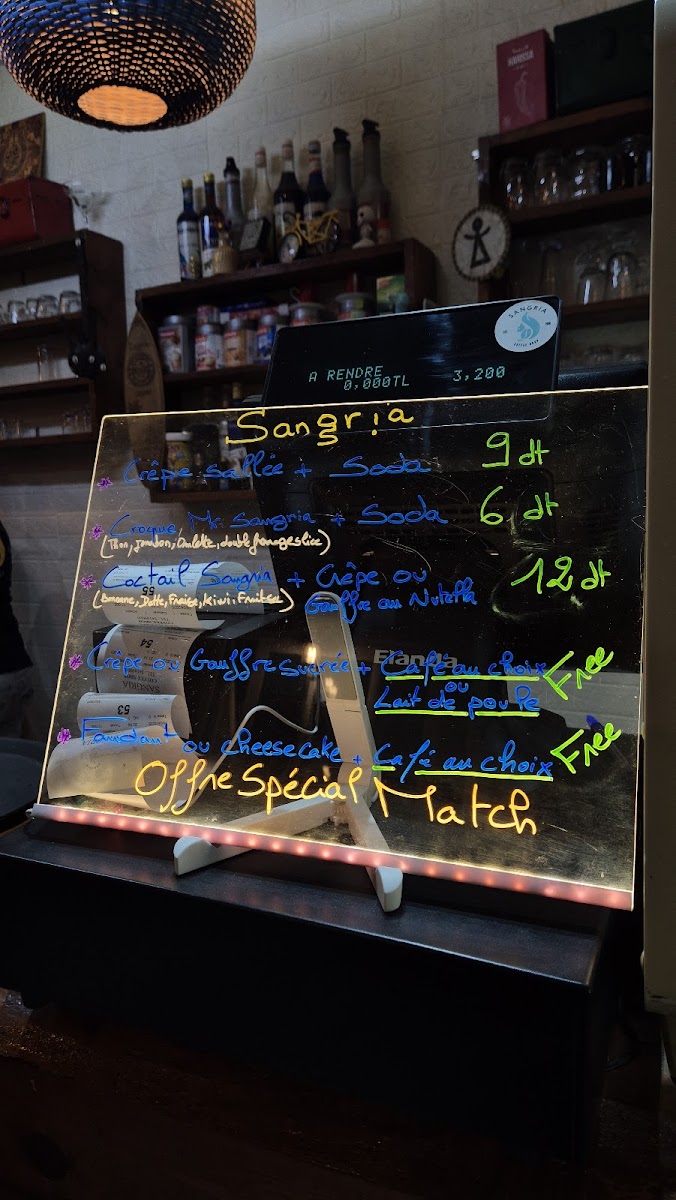 HARISSA
SANGRIA
COFFEE SHOP
A RENDRE
0,000TL 3,200
Sangria
* Crêpe sallée + Soda 9 dt
* Croque Mr. Sangria + Soda 6 dt
(Thon, Jambon, Omlette, double fromage slice)
* Coctail Sangria + Crêpe ou 12 dt
(Banane, Datte, Fraise, Kiwi, Fruit sec) Gauffre au Nutella
* Crêpe ou Gauffre sucrée + Café au choix Free
ou
Lait de poule
* Fondant ou cheesecake + Café au choix Free
Offre Spécial Match
55
54
SANGRIA
53